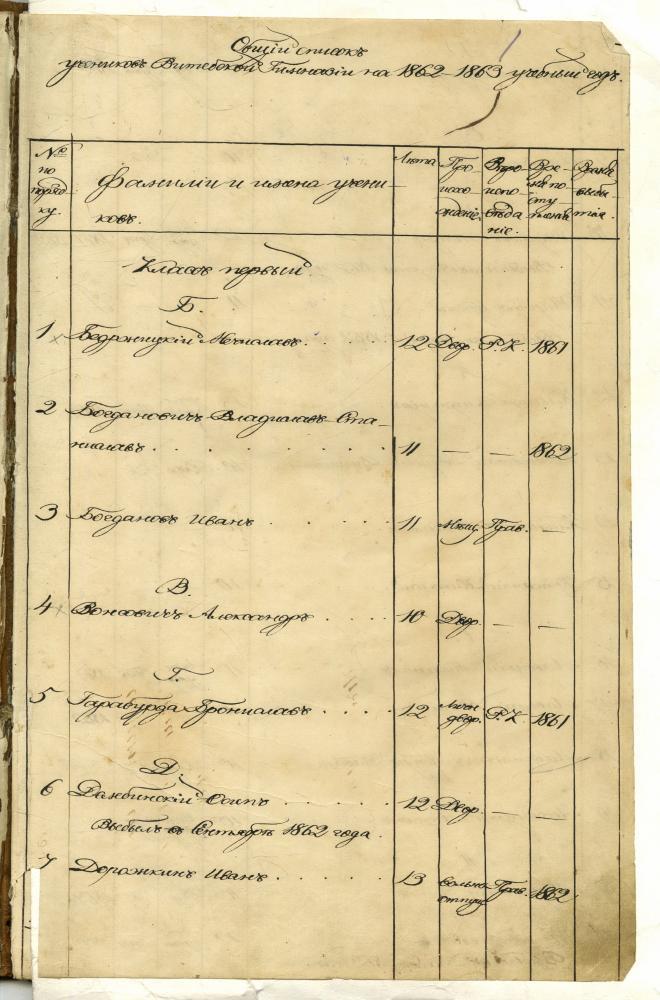 Общій списокъ
учениковъ Витебской Гимназіи на 1862–1863 учебный годъ.
№ по порядку.
Фамиліи и имена учениковъ.
Лѣта
Происхожденіе.
Вѣроисповѣданіе.
Время поступленія
Время выбытія.
Классъ первый
Б.
1 Бедроницкій Мечиславъ. 12 Двор. Р. К. 1861
2 Богдановичъ Владиславъ-Ста-
ниславъ 11 — — 1862
3 Богдановъ Иванъ 11 Мѣщ. Прав. —
В.
4 Вонсовичъ Александръ 10 Двор. — —
Г.
5 Гарабурда Брониславъ 12 двор. Р. К. 1861
Д.
6 Осипъ 12 Двор. — —
Выбылъ въ Сентябрѣ 1862 года.
7 Дорожкинъ Иванъ 13 вольно- Прав. 1862
отпущ